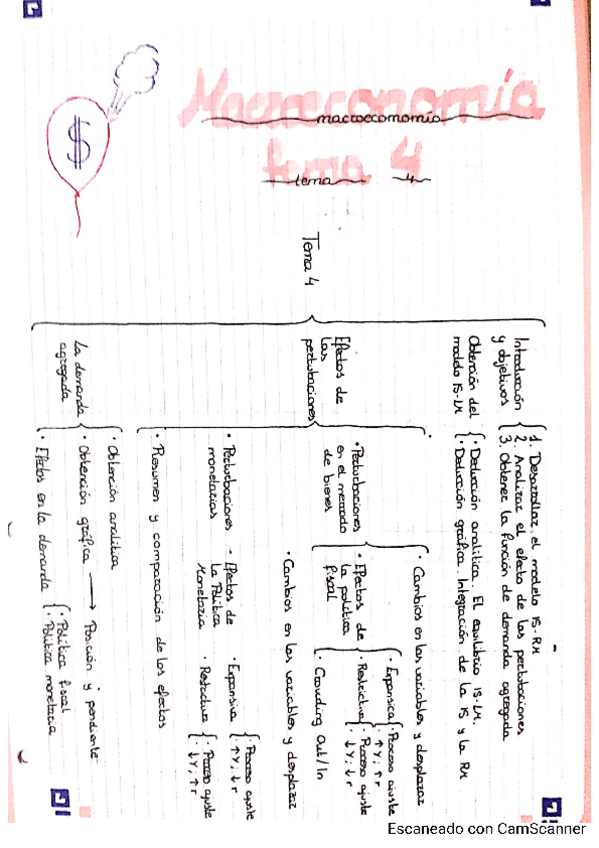 Macroeconomía
macroeconomía
tema 4
tema 4
Tema 4
Introducción
y objetivos
1. Desarrollar el modelo IS-RM
2. Analizar el efecto de las perturbaciones
3. Obtener la función de demanda agregada
Obtención del
modelo IS-LM
· Deducción analítica. El equilibrio IS-LM.
· Deducción gráfica. Integración de la IS y la RM
Efectos de
las
perturbaciones
· Perturbaciones
en el mercado
de bienes
· Cambios en las variables y desplazar
· Efectos de
la política
fiscal
· Expansiva
· Proceso ajuste
· ↑Y, ↑r
· Restrictiva
· Proceso ajuste
↓Y, ↓r
· Crowding Out/In
· Perturbaciones
monetarias
· Cambios en las variables y desplazar
· Efectos de
la Política
Monetaria
· Expansiva
· Proceso ajuste
· ↑Y, ↓r
· Restrictiva
· Proceso ajuste
↓Y, ↑r
· Resumen y comparación de los efectos
La demanda
agregada
· Obtención analítica
· Obtención gráfica → Posición y pendiente
· Efectos en la demanda
· Política fiscal
· Política monetaria
$
Escaneado con CamScanner